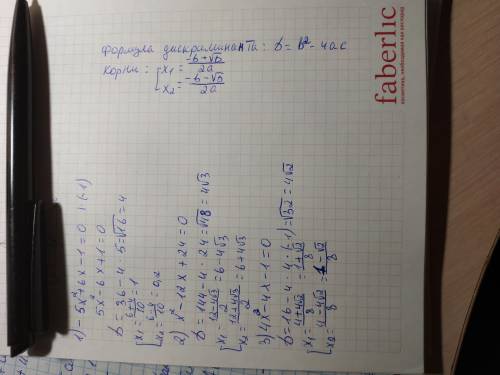 формула дискраминанта: D = b² - 4ac
корни: [x₁ = (-b+√D)/2a
x₂ = (-b-√D)/2a
1) -5x²+6x-1=0 | (-1)
5x²-6x+1=0
D = 36-4·5=√16=4
[x₁ = (6+4)/10 = 1
x₂ = (6-4)/10 = 0,2
2) x²-12x+24=0
D = 144-4·24=√48=4√3
[x₁ = (12-4√3)/2 = 6-4√3
[x₂ = (12+4√3)/2 = 6+4√3
3) 4x²-4x-1=0
D = 16-4·4·(-1)=√32=4√2
[x₁ = (4+4√2)/8 = (1+√2)/8
x₂ = (4-4√2)/8 = (1-√2)/8
faberlic